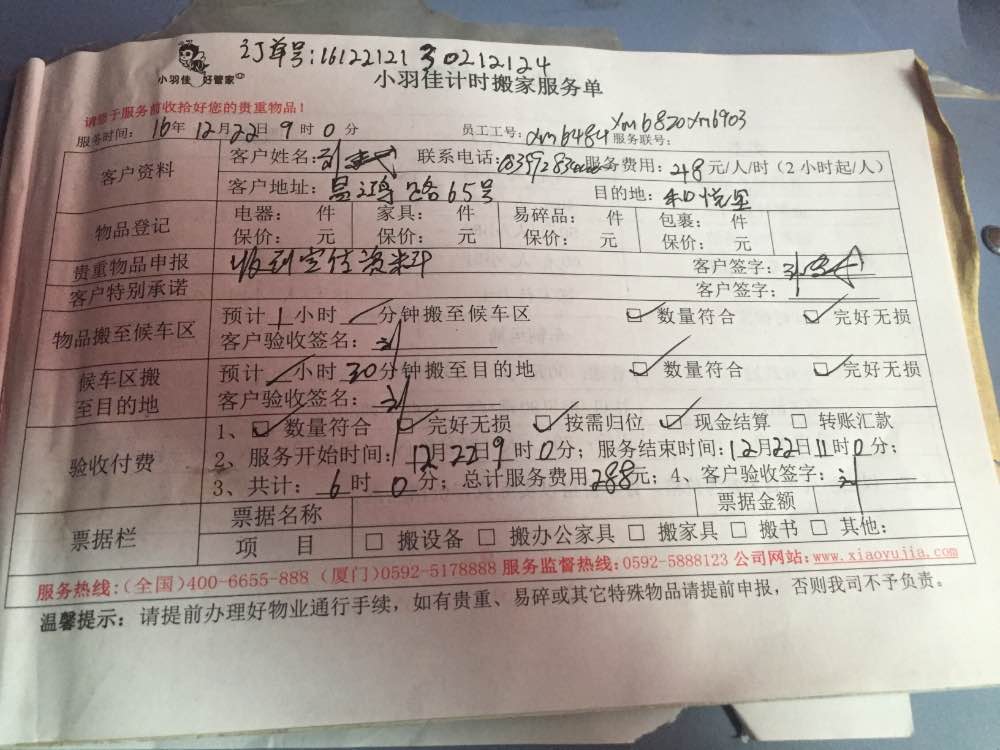 订单号:16122121 30212124
小羽佳 好管家
小羽佳计时搬家服务单
请您于服务前收拾好您的贵重物品!
服务时间: 16年 12月 22日 9时 0分 员工工号: xm6484 xm6820 xm6903 服务联号:
客户资料 客户姓名: 联系电话: 服务费用: 48元/人/时 (2小时起/人)
客户地址: 昌鸿路65号 目的地: 和悦里
物品登记 电器: 件 家具: 件 易碎品: 件 包裹: 件
保价: 元 保价: 元 保价: 元 保价: 元
贵重物品申报 收到 资料 客户签字:
客户特别承诺 客户签字:
物品搬至候车区 预计1小时 分钟搬至候车区 数量符合 完好无损
客户验收签名: 刘
候车区搬至目的地 预计 小时30分钟搬至目的地 数量符合 完好无损
客户验收签名: 刘
验收付费 1、 数量符合 完好无损 按需归位 现金结算 转账汇款
2、服务开始时间: 12月22日9时0分; 服务结束时间: 12月22日11时0分;
3、共计: 6时 0分; 总计服务费用288元; 4、客户验收签字: 刘
票据栏 票据名称 票据金额
项 目 搬设备 搬办公家具 搬家具 搬书 其他:
服务热线:(全国)400-6655-888 (厦门)0592-5178888 服务监督热线:0592-5888123 公司网站:www.xiaoyujia.com
温馨提示: 请提前办理好物业通行手续,如有贵重、易碎或其它特殊物品请提前申报,否则我司不予负责。